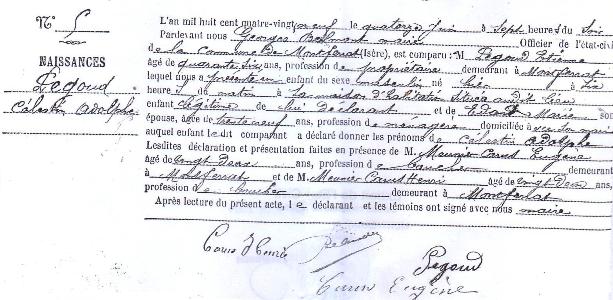 N° 5
NAISSANCES
Pegoud
Célestin Adolphe
L'an mil huit cent quatre-vingt neuf le quatorze Juin à Sept heures du Soir
Pardevant nous Georges maire Officier de l'état-civil
de la Commune de Montferrat (Isère), est comparu : M Pegoud Etienne
âgé de quarante Six ans, profession de propriétaire demeurant à Montferrat
lequel nous a présenté un enfant du sexe masculin né hier à six
heures du matin à la maison d'habitation située audit lieu
enfant légitime de lui déclarant et de Marie son
épouse, âgée de trente neuf ans, profession de ménagère domiciliée avec son mari
auquel enfant ledit comparant a déclaré donner les prénoms de Célestin Adolphe
Lesdites déclaration et présentation faites en présence de M. Meunier Carus Eugène
âgé de vingt Deux ans, profession de demeurant
à Montferrat et de M. Meunier Carus Henri âgé de vingt Deux ans,
profession de demeurant à Montferrat
Après lecture du présent acte, le déclarant et les témoins ont signé avec nous maire
Carus Henri
Pegoud
Carus Eugène